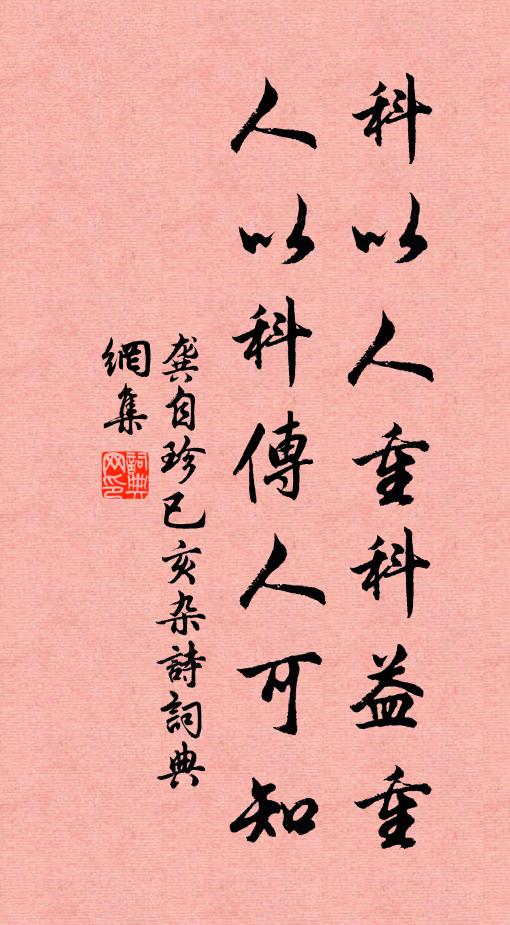 科以人重科益重
人以科傳人可知
龔自珍已亥杂詩詞典
網集
詞典网印